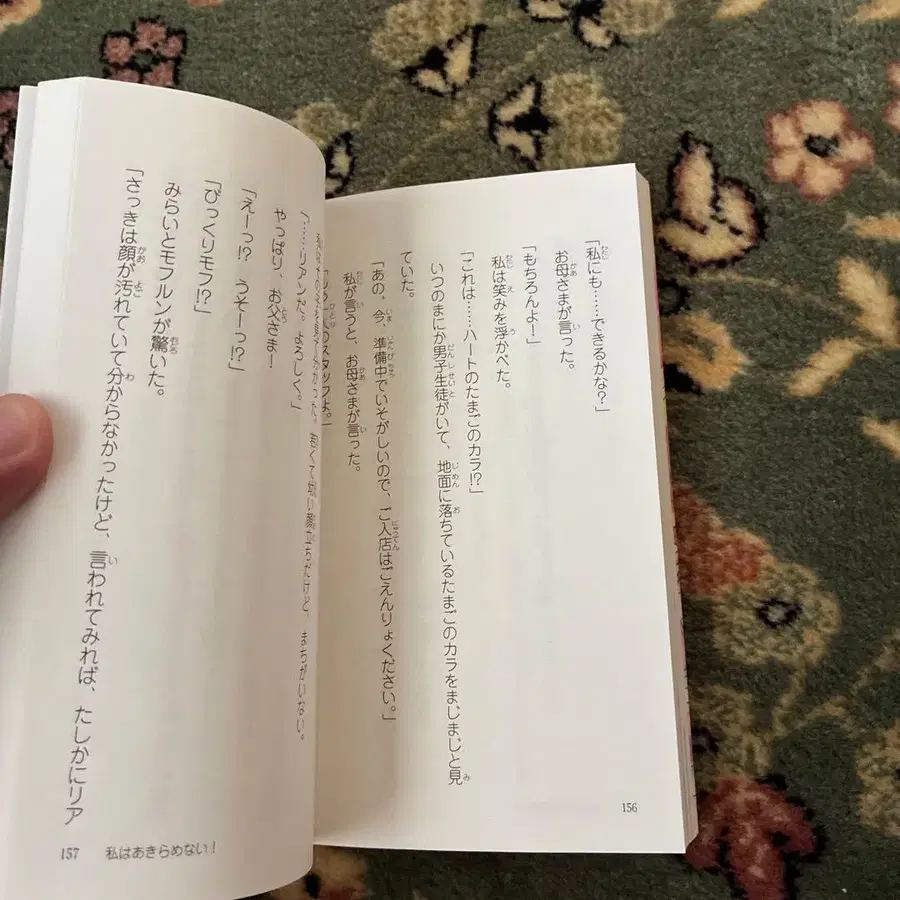 「私にも……できるかな？」
お母さまが言った。
「もちろんよ！」
私は笑みを浮かべた。
「これは……ハートのたまごのカラ！？」
いつのまにか男子生徒がいて、地面に落ちているたまごのカラをまじまじと見
ていた。
「あの、今、準備中でいそがしいので、ご入店はごえんりょください。」
私が言うと、お母さまが言った。
156
スタッフよ。」
分かった。若くて幼い顔立ちだけど、まちがいない。
「……リアンだ。よろしく。」
やっぱり、お父さま！
「えーっ！？　うそーっ！？」
「びっくりモフ！？」
みらいとモフルンが驚いた。
「さっきは顔が汚れていて分からなかったけど、言われてみれば、たしかにリア
157　私はあきらめない！